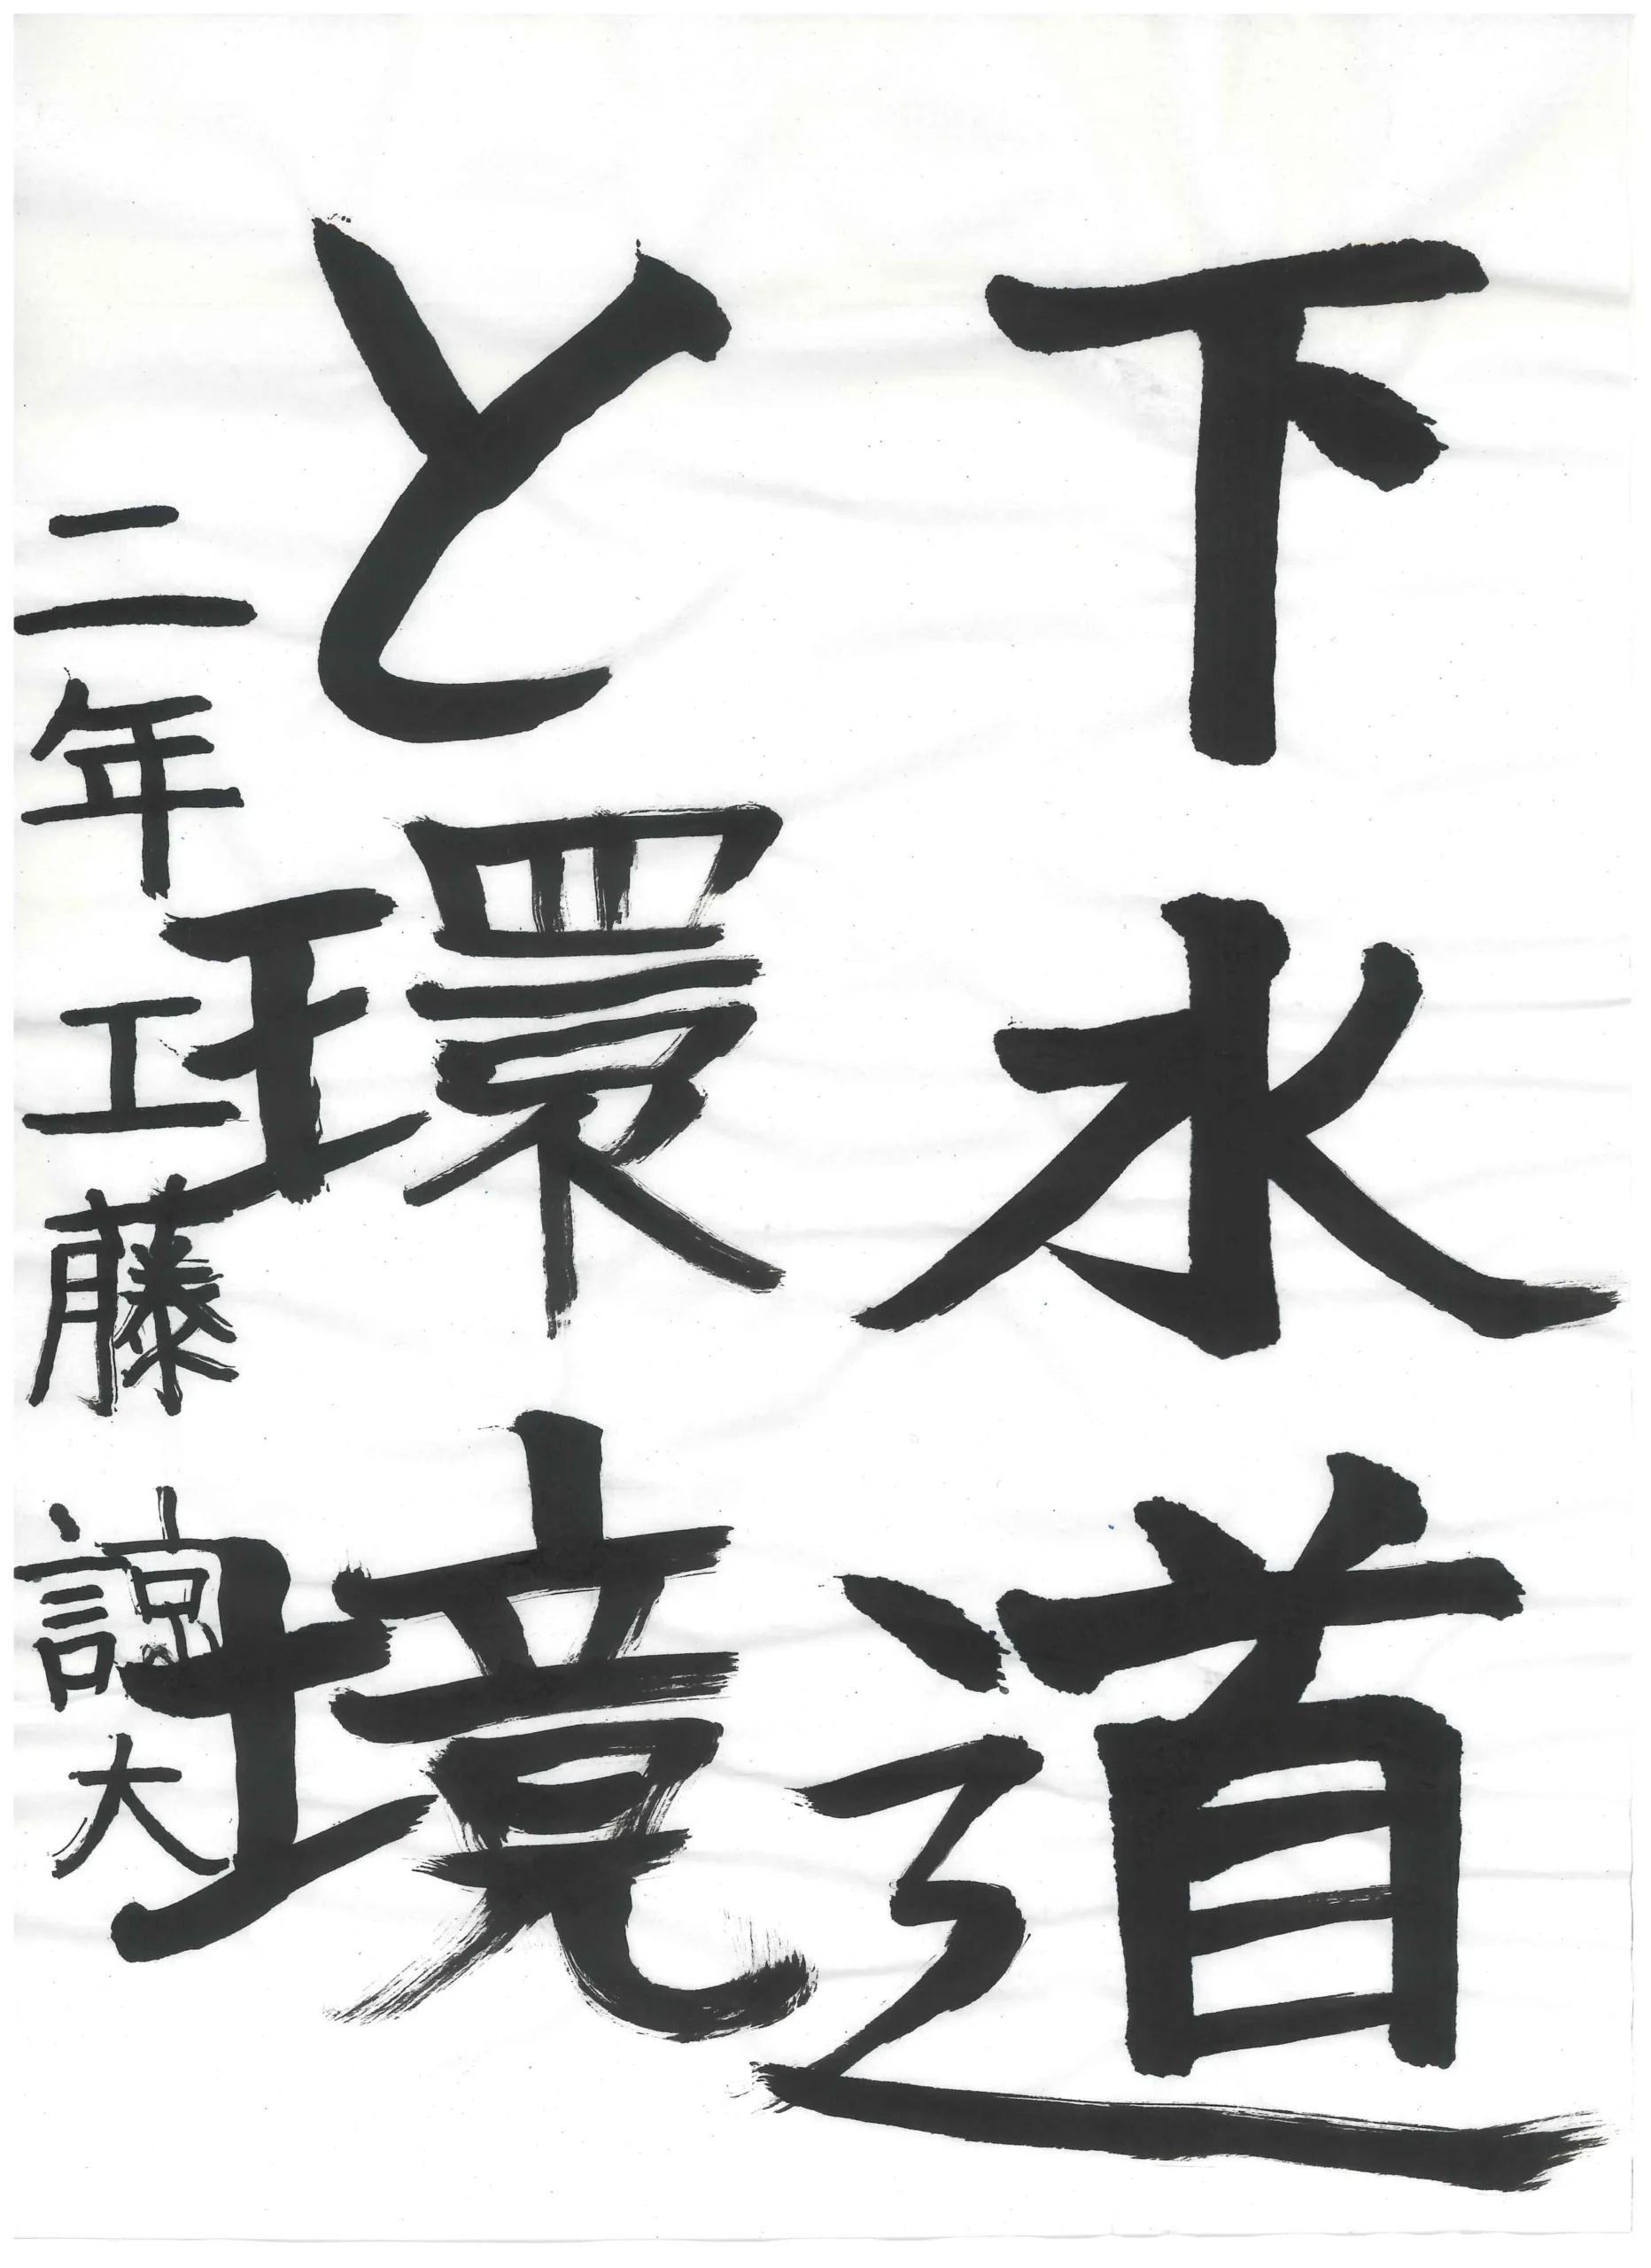 下水道
と環境
二年工藤諒大